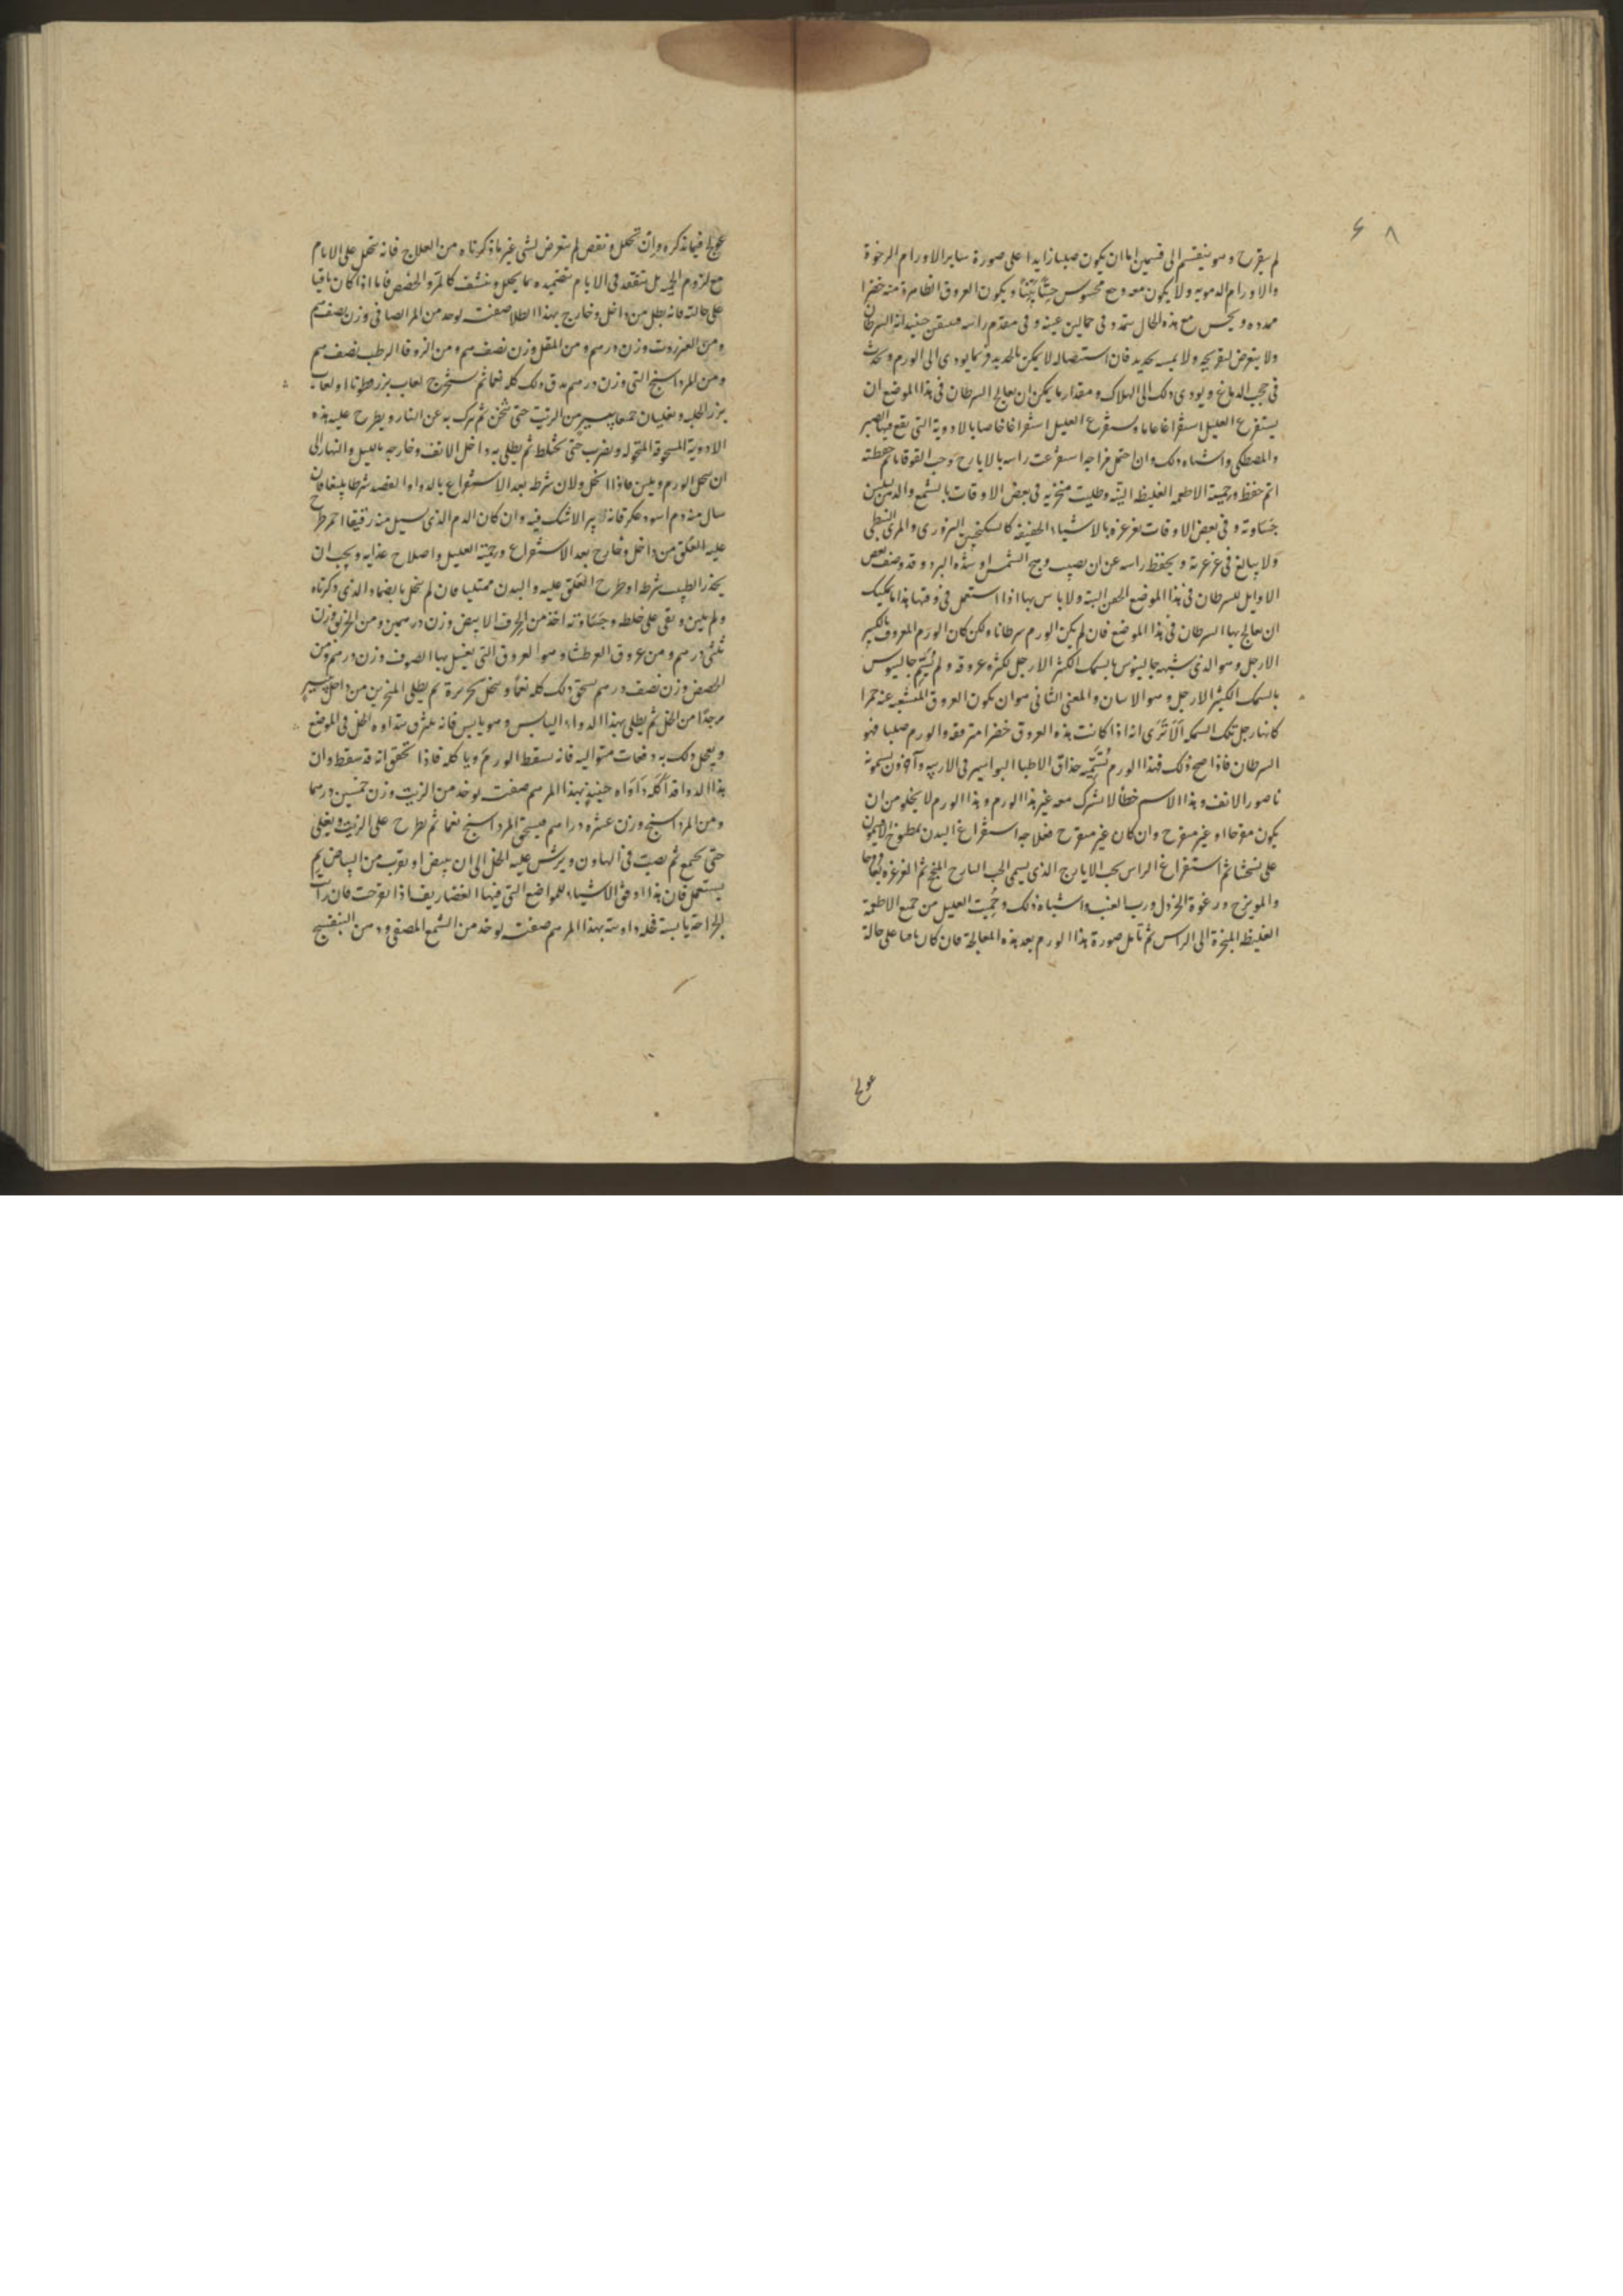 ٤٨
لم يتقرح وهو ينقسم الى قسمين اما ان يكون صلبا زايدا على صورة ساير الاورام الرخوة
والاورام الدمويه ولا يكون معه وجع محسوس حسًّا بيّنًا ويكون العروق الظاهرة منه خضرا
ممدده ويحس مع هذه الحال تمدد فى حمالين عينه وفى مقدم راسه فيتيقن حينيذ انه السرطان
ولا يتعرض لتقريحه ولا يمسه بحديد فان استيصاله لا يمكن بالحديد وربما يودى الى الورم ويحدث
فى حجب الدماغ ويودى ذلك الى الهلاك ومقدار ما يمكن ان يعالج السرطان فى هذا الموضع ان
يستفرغ العليل استفراغا عاما ويستفرغ العليل استفراغا خاصا بالادوية التى يقع فيها الصبر
والمصطكى واشباه ذلك وان احتمل مزاجه استفرغت راسه بالايارج وحب القوقايا ثم حفظته
اتم حفظ وحميته الاطعمه الغليظه البتة وطليت منخريه فى بعض الاوقات بالشمع والدهن ليلين
جساوته وفى بعض الاوقات تغرغره بالاشياء الخفيفه كالسكنجبين البزورى والمرى النبطى
ولا يبالغ فى غرغرته ويحفظ راسه عن ان يصيبه وهج الشمس او شدة البرد وقد وصف بعض
الاوايل للسرطان فى هذا الموضع الحقن البتة ولا باس بها اذا استعمل فى وقتها هذا ما يمكنك
ان تعالج بها السرطان فى هذا الموضع فان لم يكن الورم سرطانا ولكن كان الورم المعروف بالكثير
الارجل وهو الذى شبهه جالينوس بالسمك الكثير الارجل لكثرة عروقه ولم يسمّه جالينوس
بالسمك الكثير الارجل وهو الاسان والمعنى الثانى هو ان يكون العروق المتشعبه عنه حمرا
كانها رجل تلك السمكه ألا ترى انه اذا كانت هذه العروق خضرا مترفعه والورم صلبا فهو
السرطان فاذا صح ذلك فهذا الورم يُسَمِّيه حذاق الاطبا البواسير فى الاربيه وآخرون يسمونه
ناصور الانف وهذا الاسم خطأ لا يشرك معه غير هذا الورم وهذا الورم لا يخلو من ان
يكون متقرحا او غير متقرح وان كان غير متقرح فعلاجه استفراغ البدن بمطبوخ الافتيمون
على نسختنا ثم استفراغ الراس بحب الايارج الذى يسمى الحب البارح المنجح ثم الغرغره
والمويزج ورغوة الخردل ورب العنب واشباه ذلك وحميت العليل من جميع الاطعمة
الغليظه المبخرة الى الراس ثم تامل صورة هذا الورم بعد هذه المعالجة فان كان باقيا على حالة
عولج
عولج فيما نذكره وان تحلل ونقص لم يتعرض لشى غير ما ذكرناه من العلاج فانه يتحلل على الايام
مع لزوم الحمية بل يتفقد فى الايام بتضميده بما يحلل وينشف كالمر والحضض فاما اذا كان باقيا
على حالته فانه يطلى من داخل وخارج بهذا الطلا صفته يوخذ من المر الصافى وزن نصف درهم
ومن العنزروت وزن درهم ومن المقل وزن نصف درهم ومن الزوفا الرطب نصف درهم
ومن المرداسنج التى وزن درهم يدق ذلك كله نعما ثم يستخرج لعاب بزر قطونا او لعاب
بزر الحلبه ويغليان جميعا بيسير من الزيت حتى يثخن ثم يترك به عن النار ويطرح عليه هذه
الادوية المسحوقة المنخوله ويضرب حتى يختلط ثم يطلى به داخل الانف وخارجه بالليل والنهار الى
ان يتحلل الورم ويلين فاذا انحل ولان شرطه بعد الاستفراغ بالدوا او الفصد شرطا بليغا فان
سال منه دم اسود عكر فانه لا يبرا لاشك فيه وان كان الدم الذى يسيل منه رقيقا احمر طرح
عليه العلق من داخل وخارج بعد الاستفراغ وحمية العليل واصلاح غذايه ويجب ان
يحذر الطبيب شرطه او طرح العلق عليه والبدن ممتليا فان لم ينحل بالضماد الذى ذكرناه
ولم يلين وبقى على غلظه وجساوته اخذ من الخرف الابيض وزن درهمين ومن الخربق وزن
ثلثى درهم ومن عروق العرطنيثا وهو العروق التى يغسل بها الصوف وزن درهم ومن
الحضض وزن نصف درهم يسحق ذلك كله نعمًا وينخل بحريرة ثم يطلى المنخرين من داخل بيسير
مرجدًا من الخل ثم يطلى بهذا الدواء اليابس وهو يابس فانه يلتزق بنداوه الخل فى الموضع
ويعمل ذلك به دفعات متواليه فانه يسقط الورم وياكله فاذا تحقق انه قد سقط وان
هذا الدوا قد أكله داواه حينيذ بهذا المرهم صفته يوخذ من الزيت وزن خمسين درهما
ومن المرداسنج وزن عشره دراهم فيسحق المرداسنج نعما ثم يطرح على الزيت ويغلى
حتى يجتمع ثم يصب فى الهاون ويرش عليه الخل الى ان يبيض او يقرب من البياض ثم
يستعمل فان هذا اوفق الاشياء للمواضع التى فيها الغضاريف اذا تقرحت فان رايت
الجراحة يابسة فله داوته بهذا المرهم صفته يوخذ من الشمع المصفى ودهن البنفسج